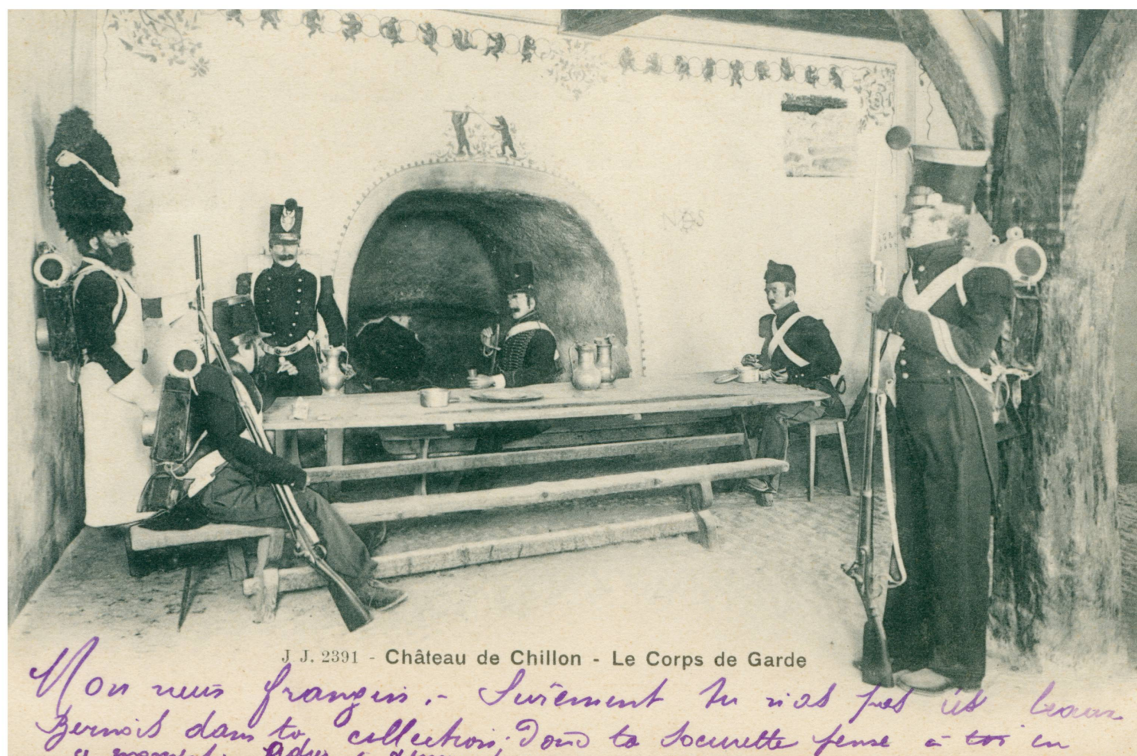 J J. 2391 - Château de Chillon - Le Corps de Garde
Mon vieux frangin. - Surement tu n'as pas ces beaux
Bernois dans ta collection; Donc ta soeurette pense à toi en